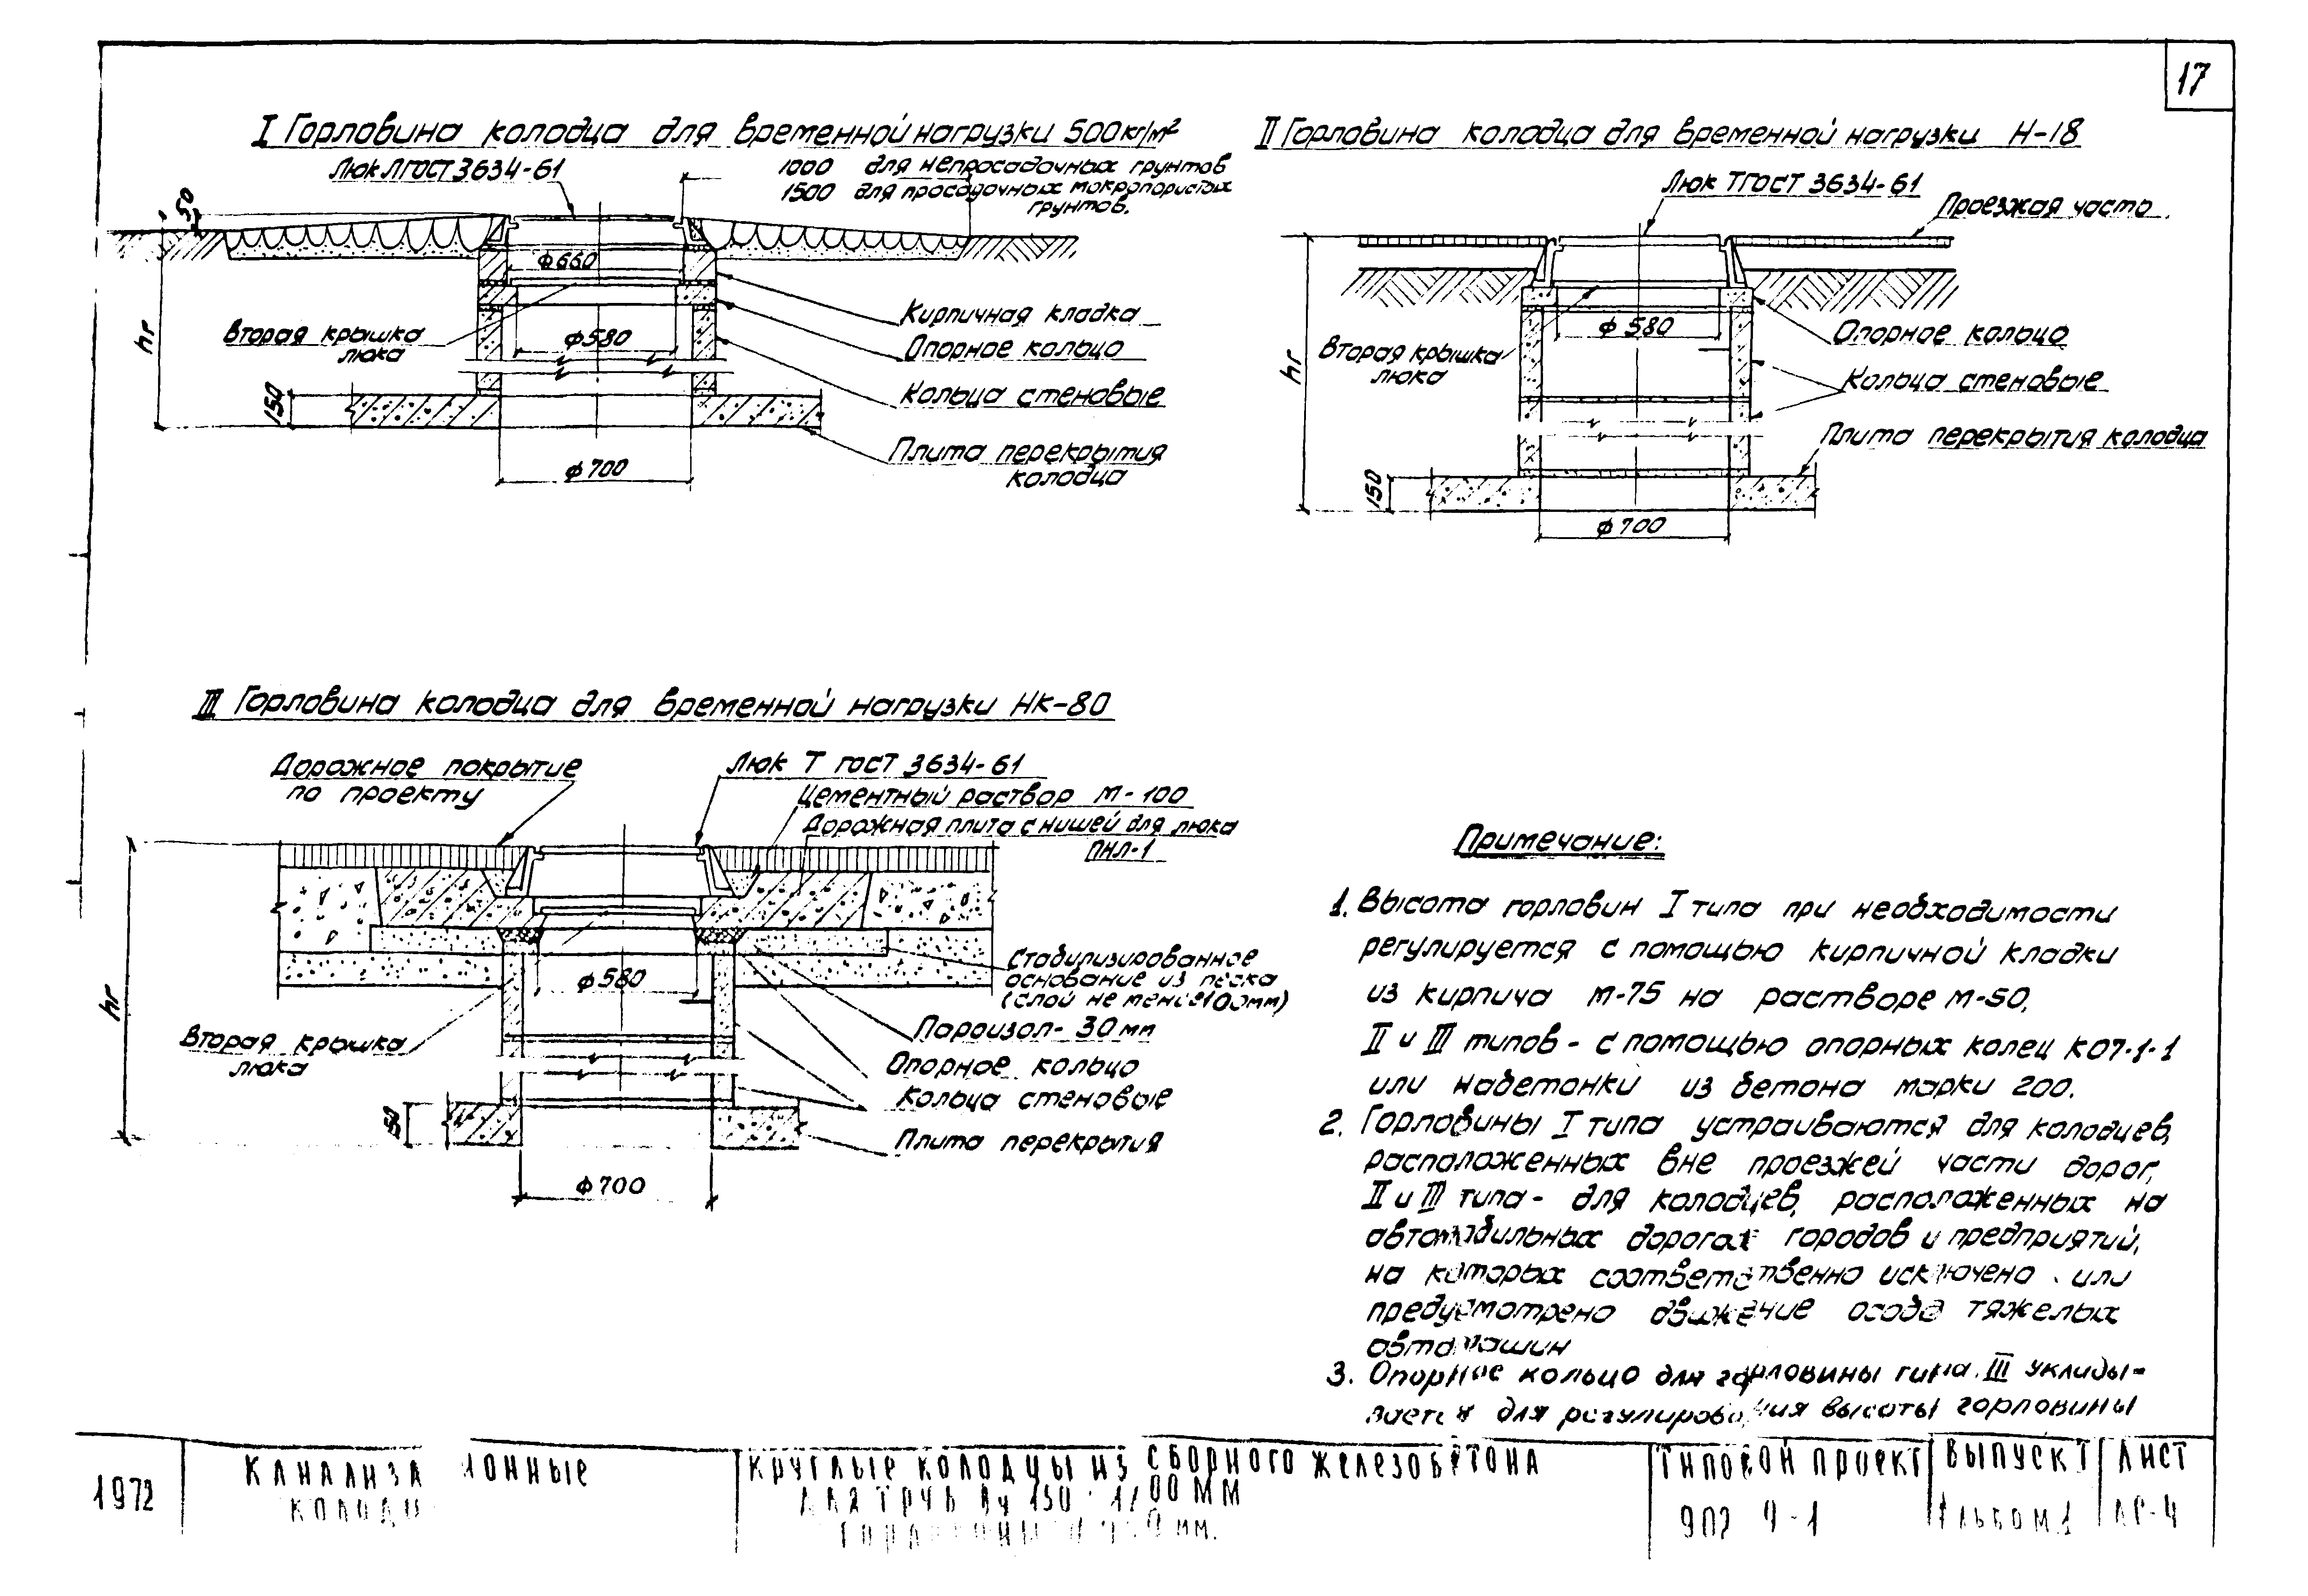 17
I Горловина колодца для временной нагрузки 500кг/м²
Люк Л ГОСТ 3634-61
1000 для непросадочных грунтов
1500 для просадочных макропористых
грунтов.
50
ф660
Кирпичная кладка
Вторая крышка
люка
ф580
Опорное кольцо
hг
Кольца стеновые
150
Плита перекрытия
колодца
ф700
II Горловина колодца для временной нагрузки Н-18
Люк Т ГОСТ 3634-61
Проезжая часть
ф580
Опорное кольцо
Вторая крышка
люка
hг
Кольца стеновые
Плита перекрытия колодца
150
ф700
III Горловина колодца для временной нагрузки НК-80
Дорожное покрытие
по проекту
Люк Т ГОСТ 3634-61
Цементный раствор М-100
Дорожная плита с нишей для люка
ПНЛ-1
Стабилизированное
основание из песка
(слой не менее 100мм)
ф580
hг
Пароизол-30мм
Вторая крышка
люка
Опорное кольцо
Кольца стеновые
Плита перекрытия
ф700
Примечание:
1. Высота горловин I типа при необходимости
регулируется с помощью кирпичной кладки
из кирпича М-75 на растворе М-50,
II и III типов - с помощью опорных колец КО7-1-1
или набетонки из бетона марки 200.
2. Горловины I типа устраиваются для колодцев,
расположенных вне проезжей части дорог,
II и III типа - для колодцев, расположенных на
автомобильных дорогах городов и предприятий,
на которых соответственно исключено или
предусмотрено движение особо тяжелых
автомашин
3. Опорное кольцо для горловины типа III укладывается для регулирования высоты горловины
1972
КАНАЛИЗАЦИОННЫЕ
КОЛОДЦЫ
КРУГЛЫЕ КОЛОДЦЫ ИЗ СБОРНОГО ЖЕЛЕЗОБЕТОНА
ДЛЯ ТРУБ Ду 150
ММ
мм.
ТИПОВОЙ ПРОЕКТ
902 9-1
ВЫПУСК I
АЛЬБОМ 1
ЛИСТ